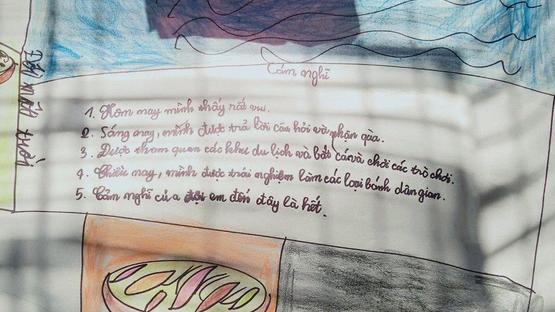 Cảm nghĩ
1. Hôm nay mình thấy rất vui.
2. Sáng nay, mình được trả lời câu hỏi và nhận quà.
3. Được tham quan các khu du lịch và bắt cá và chơi các trò chơi.
4. Chiều nay, mình được trải nghiệm làm các loại bánh dân gian.
5. Cảm nghĩ của đội em đến đây là hết.